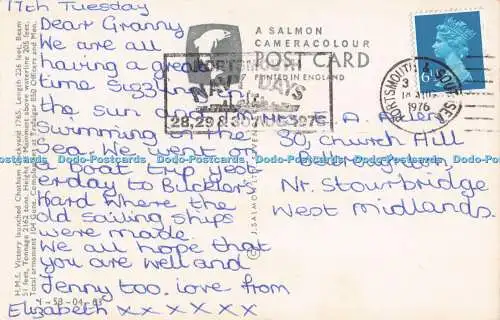 17th Tuesday
Dear Granny
We are all
having a great
time Sizzling in
the sun and
Swimming on the
Sea. We went on
a boat trip yest
erday to Bucklers
Hard where the
old sailing ships
were made.
We all hope that
you are well and
Jenny too. Love from
Elizabeth x x x x x x
H.M.S. Victory launched Chatham Dockyard 1765. Length 226 feet, Beam
51 feet, Tonnage 2162 tons. Height of Mainmast above waterline 205 feet.
Total armament 104 Guns. Complement at Trafalgar 850 Officers and Men.
1-53-04-05
A SALMON
CAMERACOLOUR
POST CARD
PRINTED IN ENGLAND
PORTSMOUTH
NAVY DAYS
28, 29 & 30 AUG 1976
PORTSMOUTH & SOUTHSEA
1976
6½P
Mrs E. A. Allen
30, Church Hill
Nr. Stourbridge
West Midlands.
Dodo-Postcards Dodo-Postcards Dodo-Postcards Dodo-Postcards Dodo-Postcards